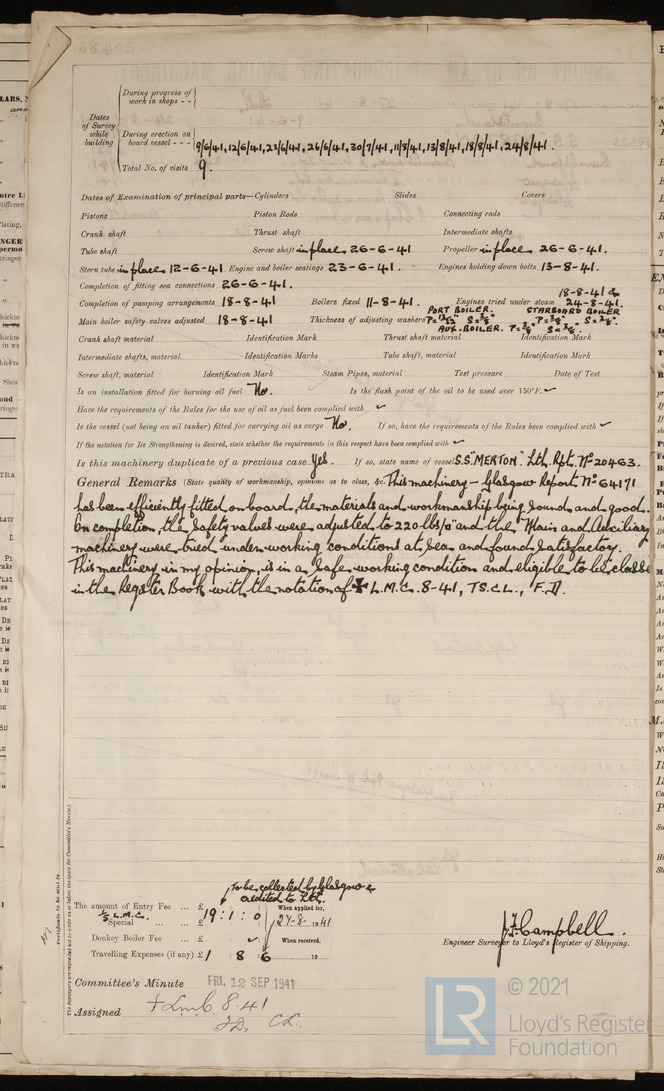 During progress of
work in shops - -
Dates
of Survey
while
building
During erection on
board vessel - - -
9/6/41, 12/6/41, 23/6/41, 26/6/41, 30/7/41, 11/8/41, 13/8/41, 18/8/41, 24/8/41.
Total No. of visits 9.
Dates of Examination of principal parts—Cylinders Slides Covers
Pistons Piston Rods Connecting rods
Crank shaft Thrust shaft Intermediate shafts
Tube shaft Screw shaft in place 26-6-41 Propeller in place 26-6-41.
Stern tube in place 12-6-41 Engine and boiler seatings 23-6-41. Engines holding down bolts 13-8-41.
Completion of fitting sea connections 26-6-41.
Completion of pumping arrangements 18-8-41 Boilers fixed 11-8-41. Engines tried under steam 18-8-41 & 24-8-41.
Main boiler safety valves adjusted 18-8-41 Thickness of adjusting washers PORT BOILER. STARBOARD BOILER
AUX. BOILER.
Crank shaft material Identification Mark Thrust shaft material Identification Mark
Intermediate shafts, material Identification Marks Tube shaft, material Identification Mark
Screw shaft, material Identification Mark Steam Pipes, material Test pressure Date of Test
Is an installation fitted for burning oil fuel No. Is the flash point of the oil to be used over 150°F. ✓
Have the requirements of the Rules for the use of oil as fuel been complied with ✓
Is the vessel (not being an oil tanker) fitted for carrying oil as cargo No. If so, have the requirements of the Rules been complied with ✓
If the notation for Ice Strengthening is desired, state whether the requirements in this respect have been complied with ✓
Is this machinery duplicate of a previous case Yes. If so, state name of vessel S.S. "MERTON". Lth. Rpt. No 20463.
General Remarks (State quality of workmanship, opinions as to class, &c. This machinery - Glasgow Report No 64171
has been efficiently fitted on board, the materials and workmanship being sound and good.
On completion, the safety valves were adjusted to 220 lbs/□" and the Main and Auxiliary
machinery were tried under working conditions at sea and found satisfactory.
This machinery in my opinion, is in a safe working condition and eligible to be classed
in the Register Book with the notation of ✠ L.M.C. 8-41, T.S. C.L., F.D.
The Surveyors are requested not to write on or below the space for Committee's Minute.)
Certificate to be sent to
To be collected by Glasgow &
credited to Lth.
The amount of Entry Fee ... £ : : When applied for,
⅓ L.M.C.
Special ... ... £ 19 : 1 : 0 27-8-1941
Donkey Boiler Fee ... £ ✓ When received,
Travelling Expenses (if any) £ 1 : 8 : 6 19
J. F. Campbell.
Engineer Surveyor to Lloyd's Register of Shipping.
Committee's Minute FRI. 12 SEP 1941
Assigned + L.M.C. 8.41
F.D. C.L.
LR
© 2021
Lloyd's Register
Foundation